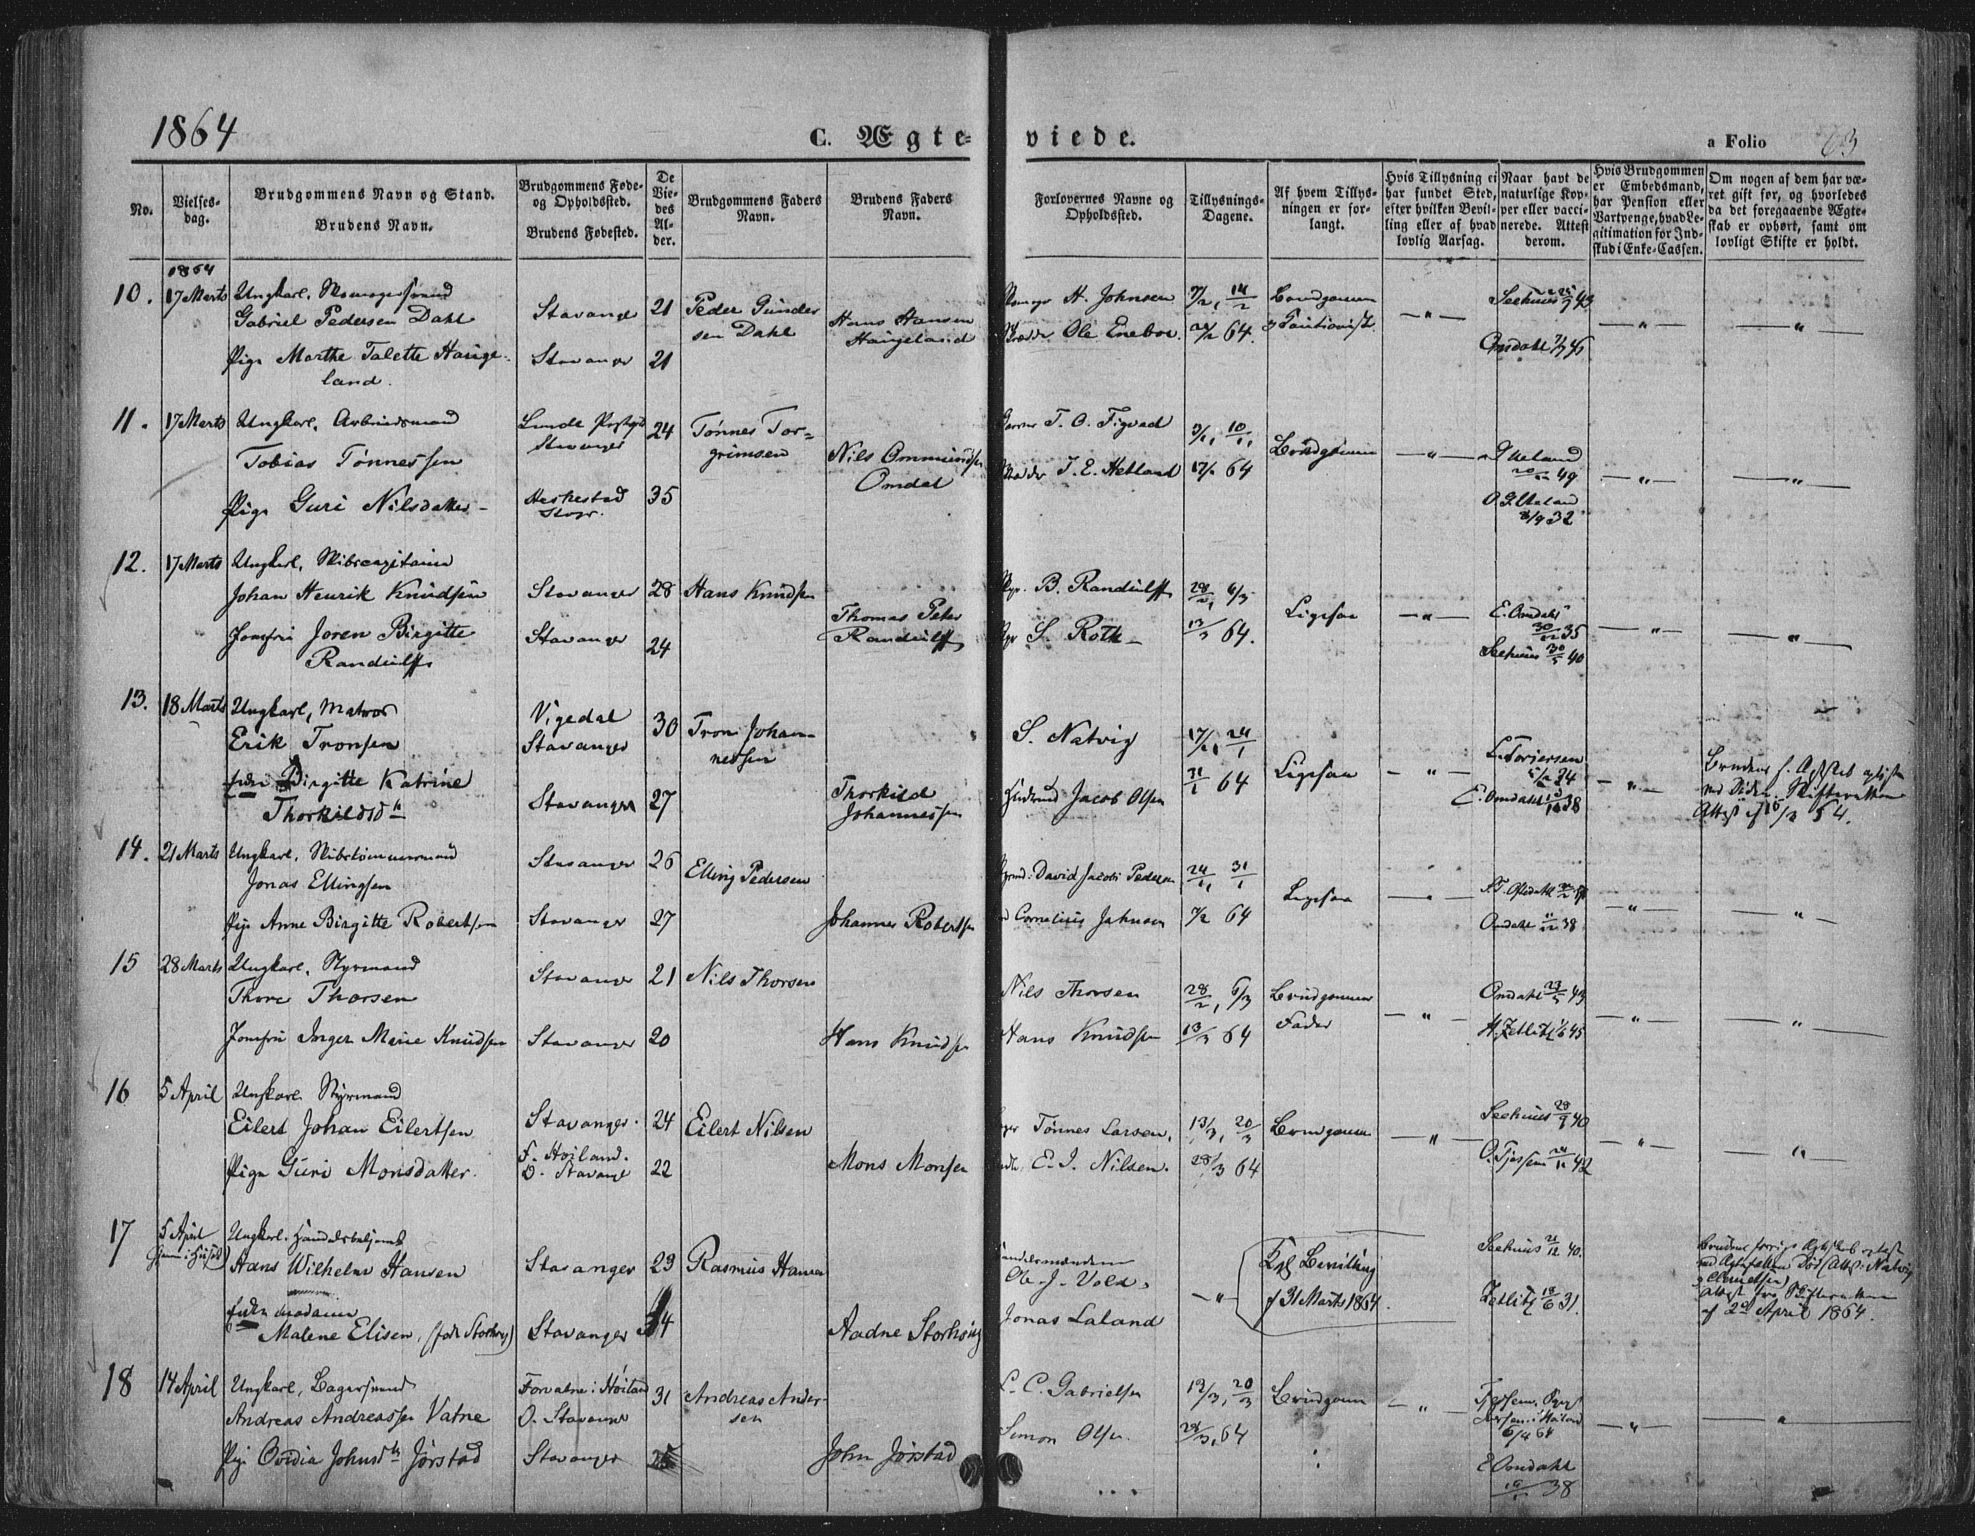 1864
C. Ægte-
viede.
a Folio
63
No.
Vielses-
dag.
Brudgommens Navn og Stand.
Brudens Navn.
Brudgommens Føde-
og Opholdssted.
Brudens Fødested.
De
Vie-
des
Al-
der.
Brudgommens Faders
Navn.
Brudens Faders
Navn.
Forlovernes Navne og
Opholdssted.
Tillysnings-
Dagene.
Af hvem Tillys-
ningen er for-
langt.
Hvis Tillysning ei
har fundet Sted,
efter hvilken Bevil-
ling eller af hvad
lovlig Aarsag.
Naar havt de
naturlige Kop-
per eller vacci-
nerede. Attest
derom.
Hvis Brudgommen
er Embedsmand,
har Pension eller
Vartpenge, hvad Le-
gitimation for Ind-
skud i Enke-Cassen.
Om nogen af dem har væ-
ret gift før, og hvorledes
da det foregaaende Ægte-
skab er ophørt, samt om
lovligt Skifte er holdt.
1864
10. 17 Marts Ungkarl, Skomagersvend
Gabriel Pedersen Dahl
Stavanger 21
Peder Gunder
sen Dahl
Hans Hansen
Haugeland
Pige Marthe Talette Hauge-
land.
Stavanger 21
H. Johnsen
Ole Eneboe. 64.
Brudgommen
Seehuus 43
Omdahl 45
11. 17 Marts Ungkarl, Arbeidsmand
Tobias Tønnessen
Lunde Præstgd
Stavanger 24
Tønnes Tor-
grimsen
Nils Ommundsen
Omdal
Pige Guri Nilsdatter
Heskestad
Stvgr. 35
T. O. Figved
T. E. Hetland 17/1 64
Brudgommen
Ueland
49
Ueland
32
12. 17 Marts Ungkarl, Skibscapitaine
Johan Henrik Knudsen
Stavanger 28 Hans Knudsen
Thomas Peter
Randulff
Jomfru Joren Birgitte
Randulff
Stavanger 24
B. Randulff 28/2, 6/3
S. Roth 13/3 64.
Ligesaa
E. Omdahl
30/12 35
Seehuus 30/5 40
13. 18 Marts Ungkarl, Matros
Erik Tronsen
Vigedal
Stavanger 30
Tron Johan-
nessen
Birgitte Katrine
Thorkildsdtr
Stavanger 27
Thorkild
Johannessen
S. Natvig 17/1, 24/1
Jacob Olsen 31/1 64
Ligesaa
L. Torjersen
34
E. Omdahl 38
14. 21 Marts Ungkarl, Skibstømmermand
Jonas Ellingsen
Stavanger 26
Elling Pedersen
Pige Anne Birgitte Robertsen
Stavanger 27
Johannes Robertsen
David Jacob Pedersen 24/1, 31/1
Cornelius Johnsen 7/2 64
Ligesaa
Omdahl 38
15 28 Marts Ungkarl, Styrmand
Thore Thorsen
Stavanger 21 Nils Thorsen
Jomfru Inger Marie Knudsen
Stavanger 20
Hans Knudsen
Nils Thorsen 28/2, 6/3
Hans Knudsen 13/3 64
Brudgommens
Fader
Omdahl 23/5 43
H. Zetlitz 45
16 5 April Ungkarl Styrmand
Eilert Johan Eilertsen
Stavanger. 24 Eilert Nilsen
Pige Guri Monsdatter.
F. Høiland.
O. Stavanger 22
Mons Monsen
Tønnes Larsen. 13/3, 20/3
E. I. Nilsen. 28/3 64
Brudgommen
Seehuus 40
O. Tjersen 42
17 5 April
(hjemme i Huset)
Ungkarl. Handelsbetjent
Hans Wilhelm Hansen
Stavanger 23 Rasmus Hansen
Madame
Malene Elisen, (født Storhoug)
Stavanger 44
Aadne Storhoug
Handelsmændene
Ole J. Vold,
Jonas Laland
Kgl Bevilling
af 31 Marts 1864.
Seehuus 21/12 40.
Zetlitz 31.
af 2den April 1864.
18 14 April Ungkarl, Bagersvend
Andreas Andreassen Vatne
i Høiland
O. Stavanger 31
Andreas Ander-
sen
Pige Ovidia Johnsdtr Jørstad
Stavanger 25
John Jørstad
L. C. Gabrielsen 13/3, 20/3
Simon Olsen 28/3, 64
Brudgommen
i Høiland
64
E Omdahl
38